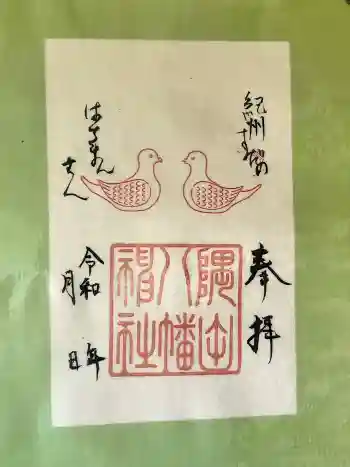 奉拝
紀州
隅田
八幡
神社
はちまん
さん
令和 年
月 日